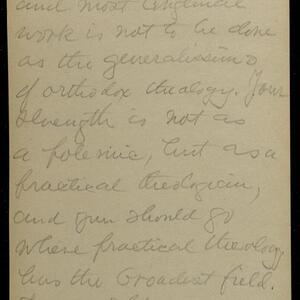 and most original
work is not to be done
as the generalissimo
of orthodox theology. Your
strength is not as
a polemic, but as a
practical theologian,
and you should go
where practical theology
has the broadest field.